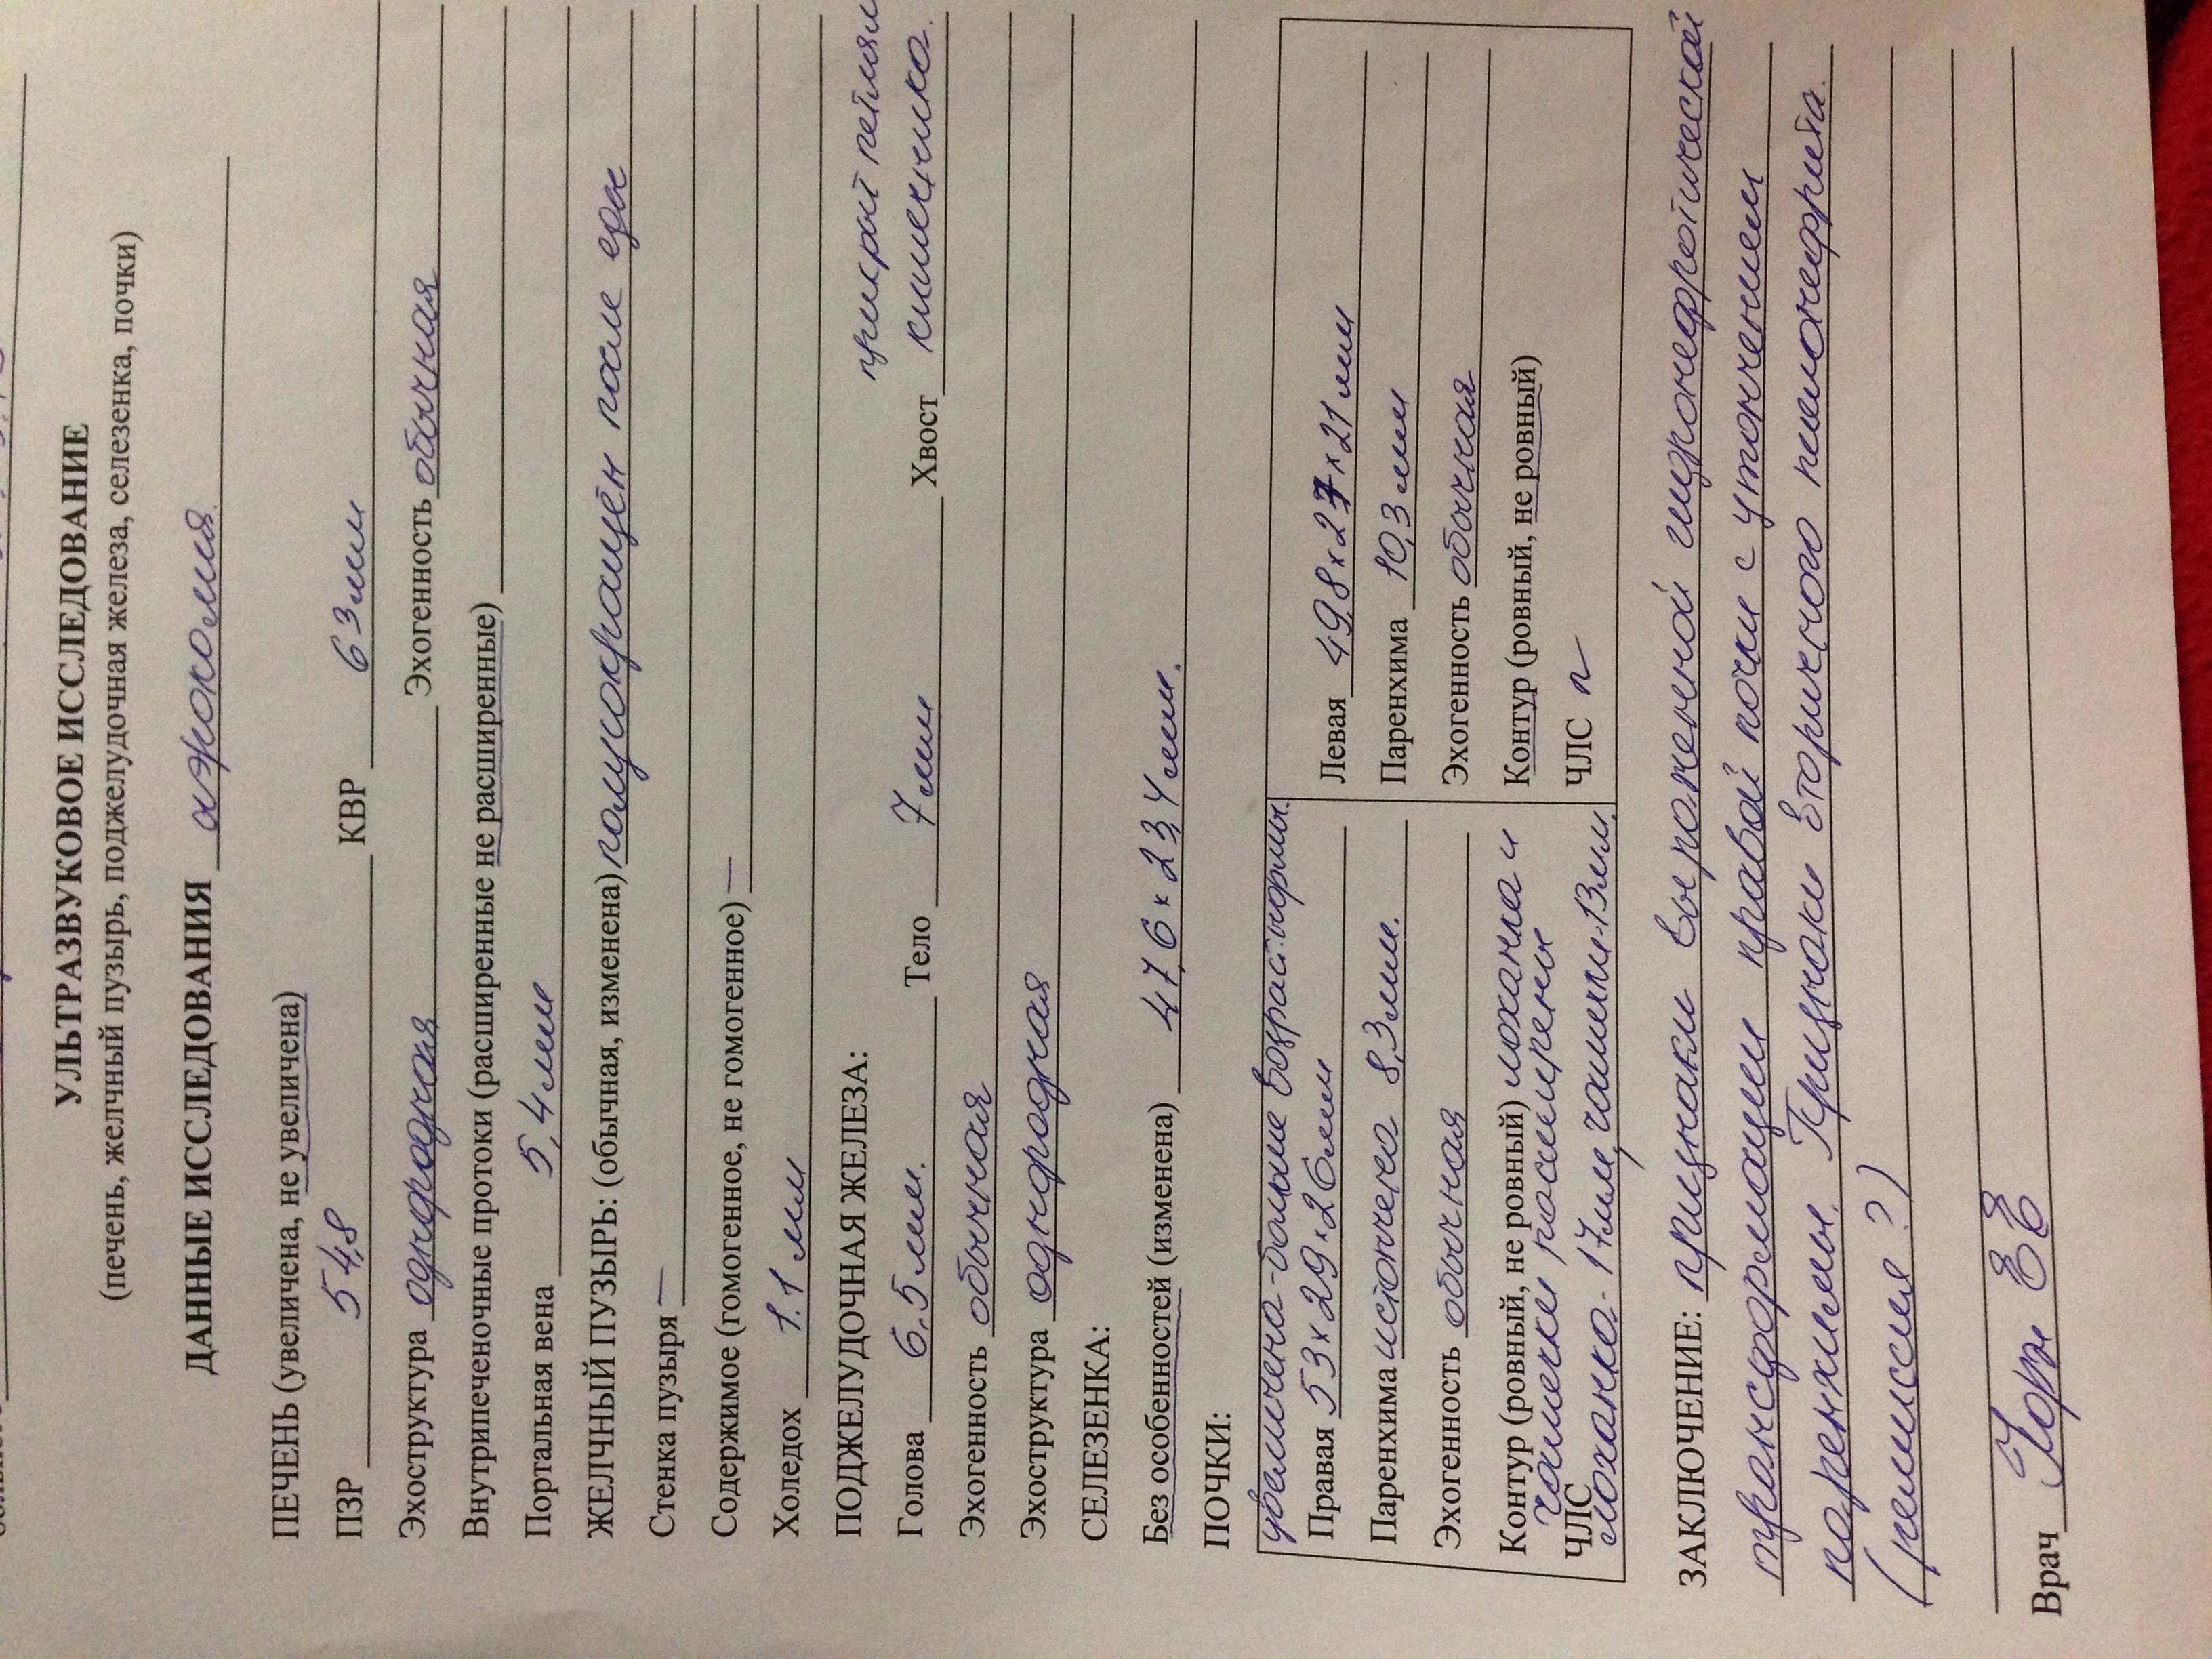 УЛЬТРАЗВУКОВОЕ ИССЛЕДОВАНИЕ
(печень, желчный пузырь, поджелудочная железа, селезенка, почки)
ДАННЫЕ ИССЛЕДОВАНИЯ
ПЕЧЕНЬ (увеличена, не увеличена)
ПЗР 54,8 КВР 63 мм
Эхоструктура однородная Эхогенность обычная
Внутрипеченочные протоки (расширенные не расширенные)
Портальная вена 5,4 мм
ЖЕЛЧНЫЙ ПУЗЫРЬ: (обычная, изменена) полусокращен после еды
Стенка пузыря —
Содержимое (гомогенное, не гомогенное) —
Холедох 1.1 мм
ПОДЖЕЛУДОЧНАЯ ЖЕЛЕЗА:
прикрыт петлями
Голова 6,5 мм. Тело 7 мм Хвост кишечника.
Эхогенность обычная
Эхоструктура однородная
СЕЛЕЗЕНКА:
Без особенностей (изменена) 47,6 × 23,4 мм.
ПОЧКИ:
увеличена - больше возраст. нормы.
Правая 53 × 29 × 26 мм Левая 49,8 × 27 × 21 мм
Паренхима истончена 8,3 мм. Паренхима 10,3 мм
Эхогенность обычная Эхогенность обычная
Контур (ровный, не ровный) лоханка и Контур (ровный, не ровный)
чашечки расширены
ЧЛС ЧЛС
лоханка - 17 мм, чашечки - 13 мм.
ЗАКЛЮЧЕНИЕ: признаки выраженной гидронефротической
трансформации правой почки с утончением
паренхимы. Признаки вторичного пиелонефрита.
(ремиссия ?)
Врач